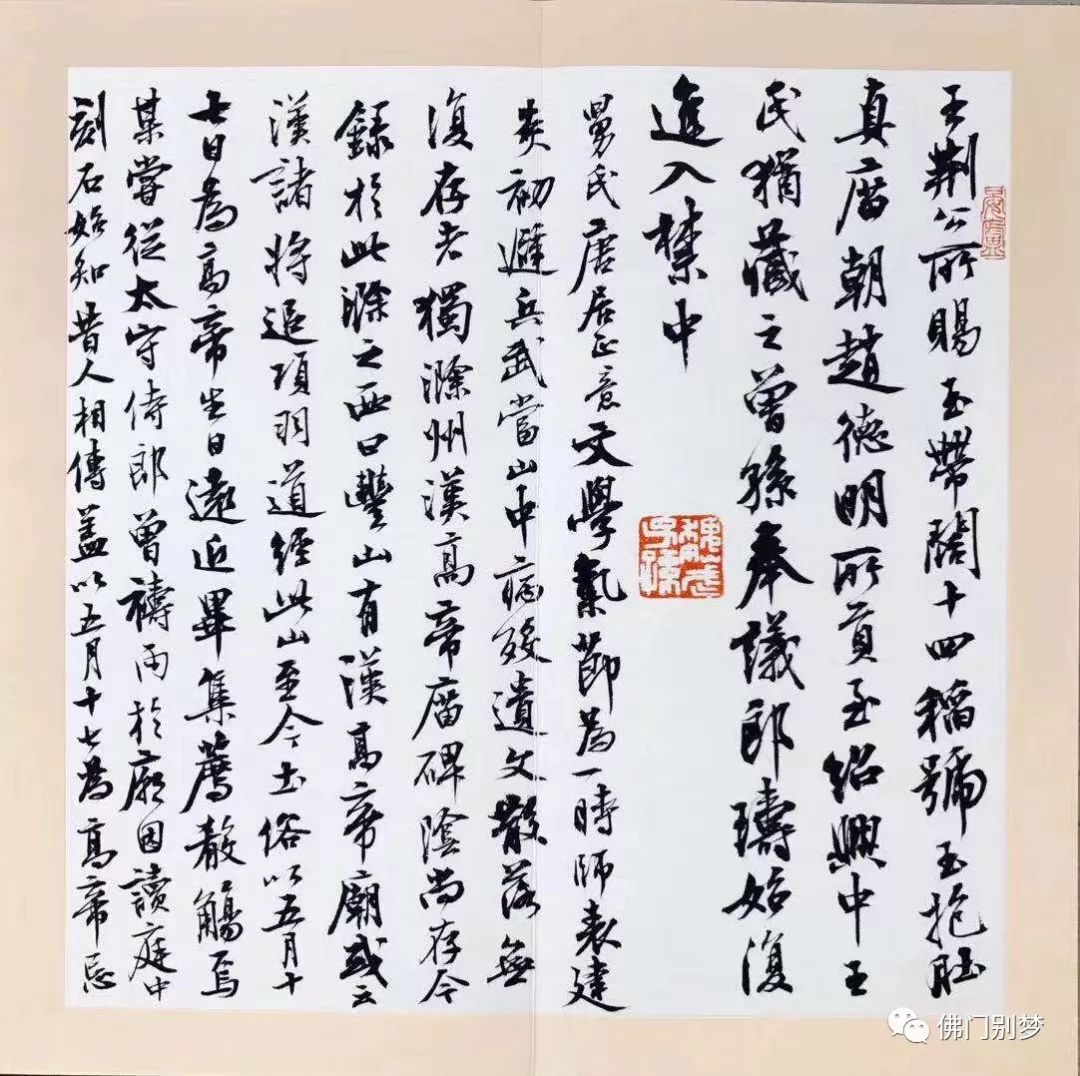 王荆公所賜玉帶闊十四稻號玉抱肚
真庙朝趙德明所貢至紹興中王
氏猶藏之曾孫奉議郎璹始復
進入禁中
舅氏唐居正意文學氣節為一時師表建
炎初避兵武當山中病歿遺文散落無
復存者獨滁州漢高帝庙碑陰尚存今
録於此滁之西曰豐山有漢高帝廟或云
漢諸將追項羽道經此山至今土俗以五月十
七日為高帝生日遠近畢集薦殽觴焉
某嘗從太守侍郎曾禱雨於廟因讀庭中
刻石始知昔人相傳蓋以五月十七為高帝忌
佛门别梦